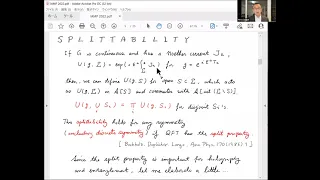 SPLITTABILITY
If G is continuous and has a Noether current J_a,
U(g, Σ) = exp(i ε^a ∫_Σ J_a) for g = e^{i ε^a T_a}
then, we can define U(g, S) for ∀open S ⊂ Σ, which acts
as U(g, Σ) on A[S] and commutes with A[int(Σ\S)]
U(g, ∪ S_i) = ∏ U(g, S_i) for disjoint S_i's.
This splittability holds for any symmetry
(including discrete symmetry) if QFT has the split property.
[Buchholz, Doplicher, Longo, Ann. Phys. 170 (1986) 1]
Since the split property is important for holography
and entanglement, let me elaborate a little....